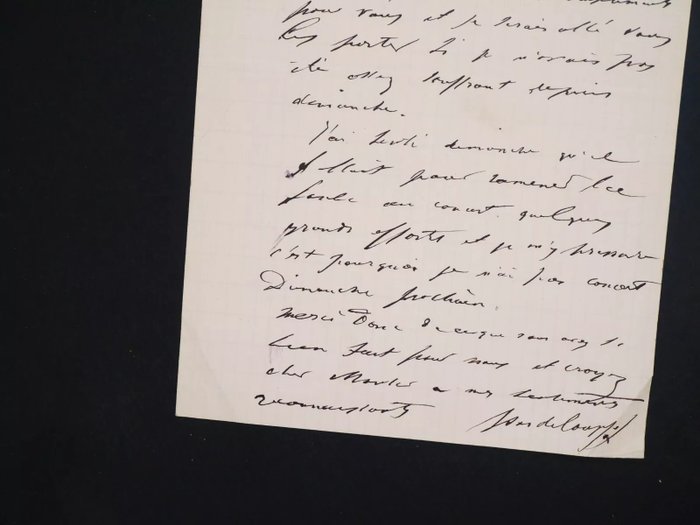 pour vous et je serais allé vous
les porter si je n'avais pas
été assez souffrant depuis
dimanche.
J'ai senti dimanche qu'il
fallait pour ramener la
foule au concert quelques
grands efforts et je m'y prépare
c'est pourquoi je n'ai pas concert
Dimanche prochain.
merci Donc de ce que vous avez si
bien fait pour nous et croyez
cher Monsieur a mes sentiments
reconnaissants
Pasdeloup